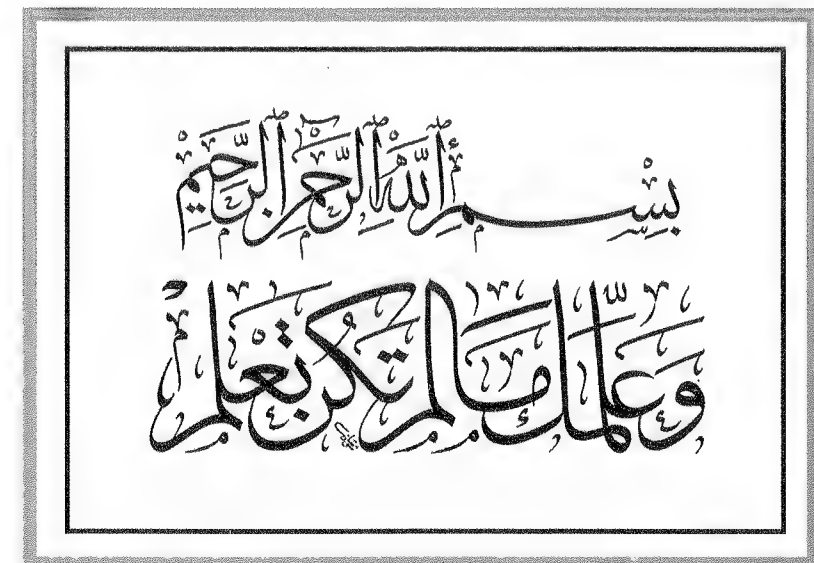 بِسْمِ ٱللَّهِ ٱلرَّحْمَٰنِ ٱلرَّحِيمِ
وَعَلَّمَكَ مَا لَمْ تَكُن تَعْلَمُ